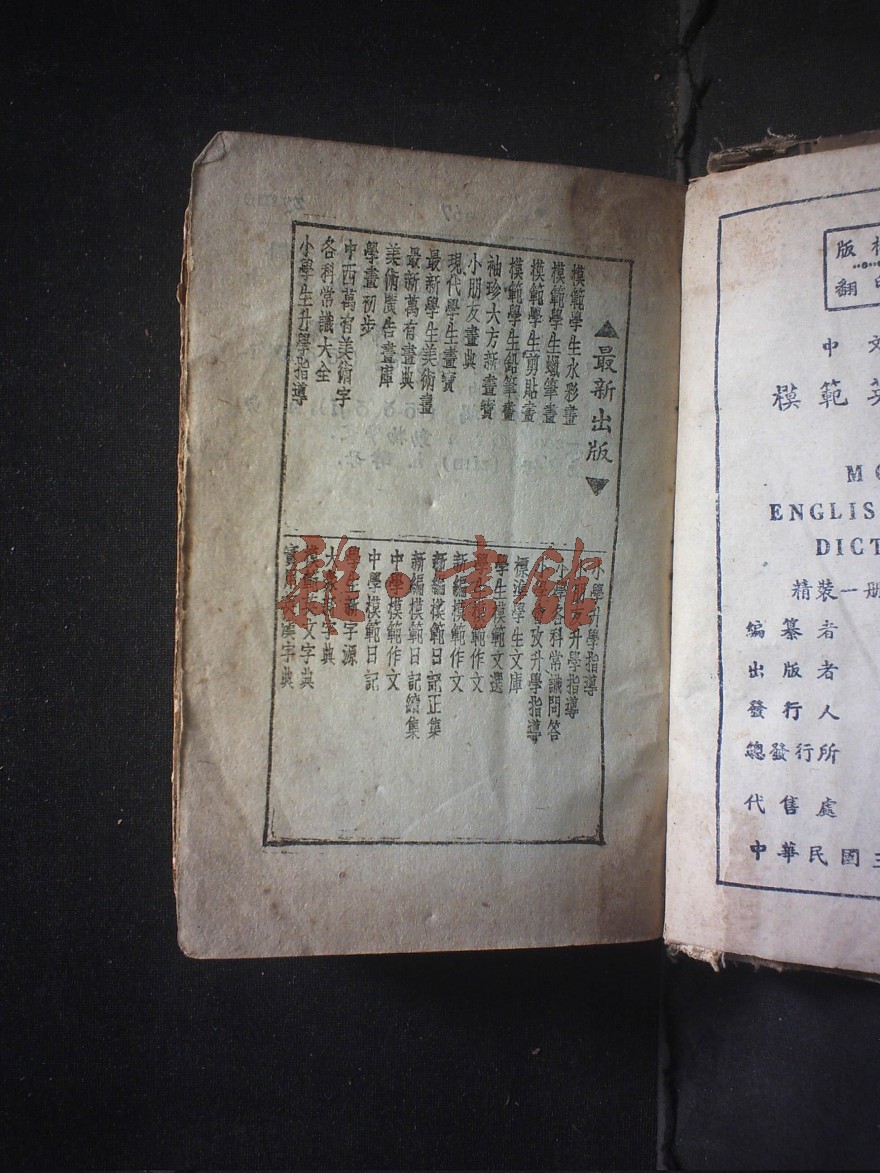 ▲最新出版▼
模範學生水彩畫
模範學生蠟筆畫
模範學生剪貼畫
模範學生鉛筆畫
袖珍大方新畫寶
小朋友畫典
現代學生畫寶
最新學生美術畫
最新萬有畫典
美術廣告畫庫
學畫初步
中西萬有美術字
各科常識大全
小學生升學指導
小學升學指導
升學指導
小學各科常識問答
攷升學指導
標準學生文庫
學生模範文選
範作文
新編模範作文
新編模範日記正集
新編模範日記續集
中學模範作文
中學模範日記
學生新字源
大字典
英文字典
字典
雜·書館
版
翻印
中文
模範英
ENGLIS
DICT
精裝一册
編纂者
出版者
發行人
總發行所
代售處
中華民國